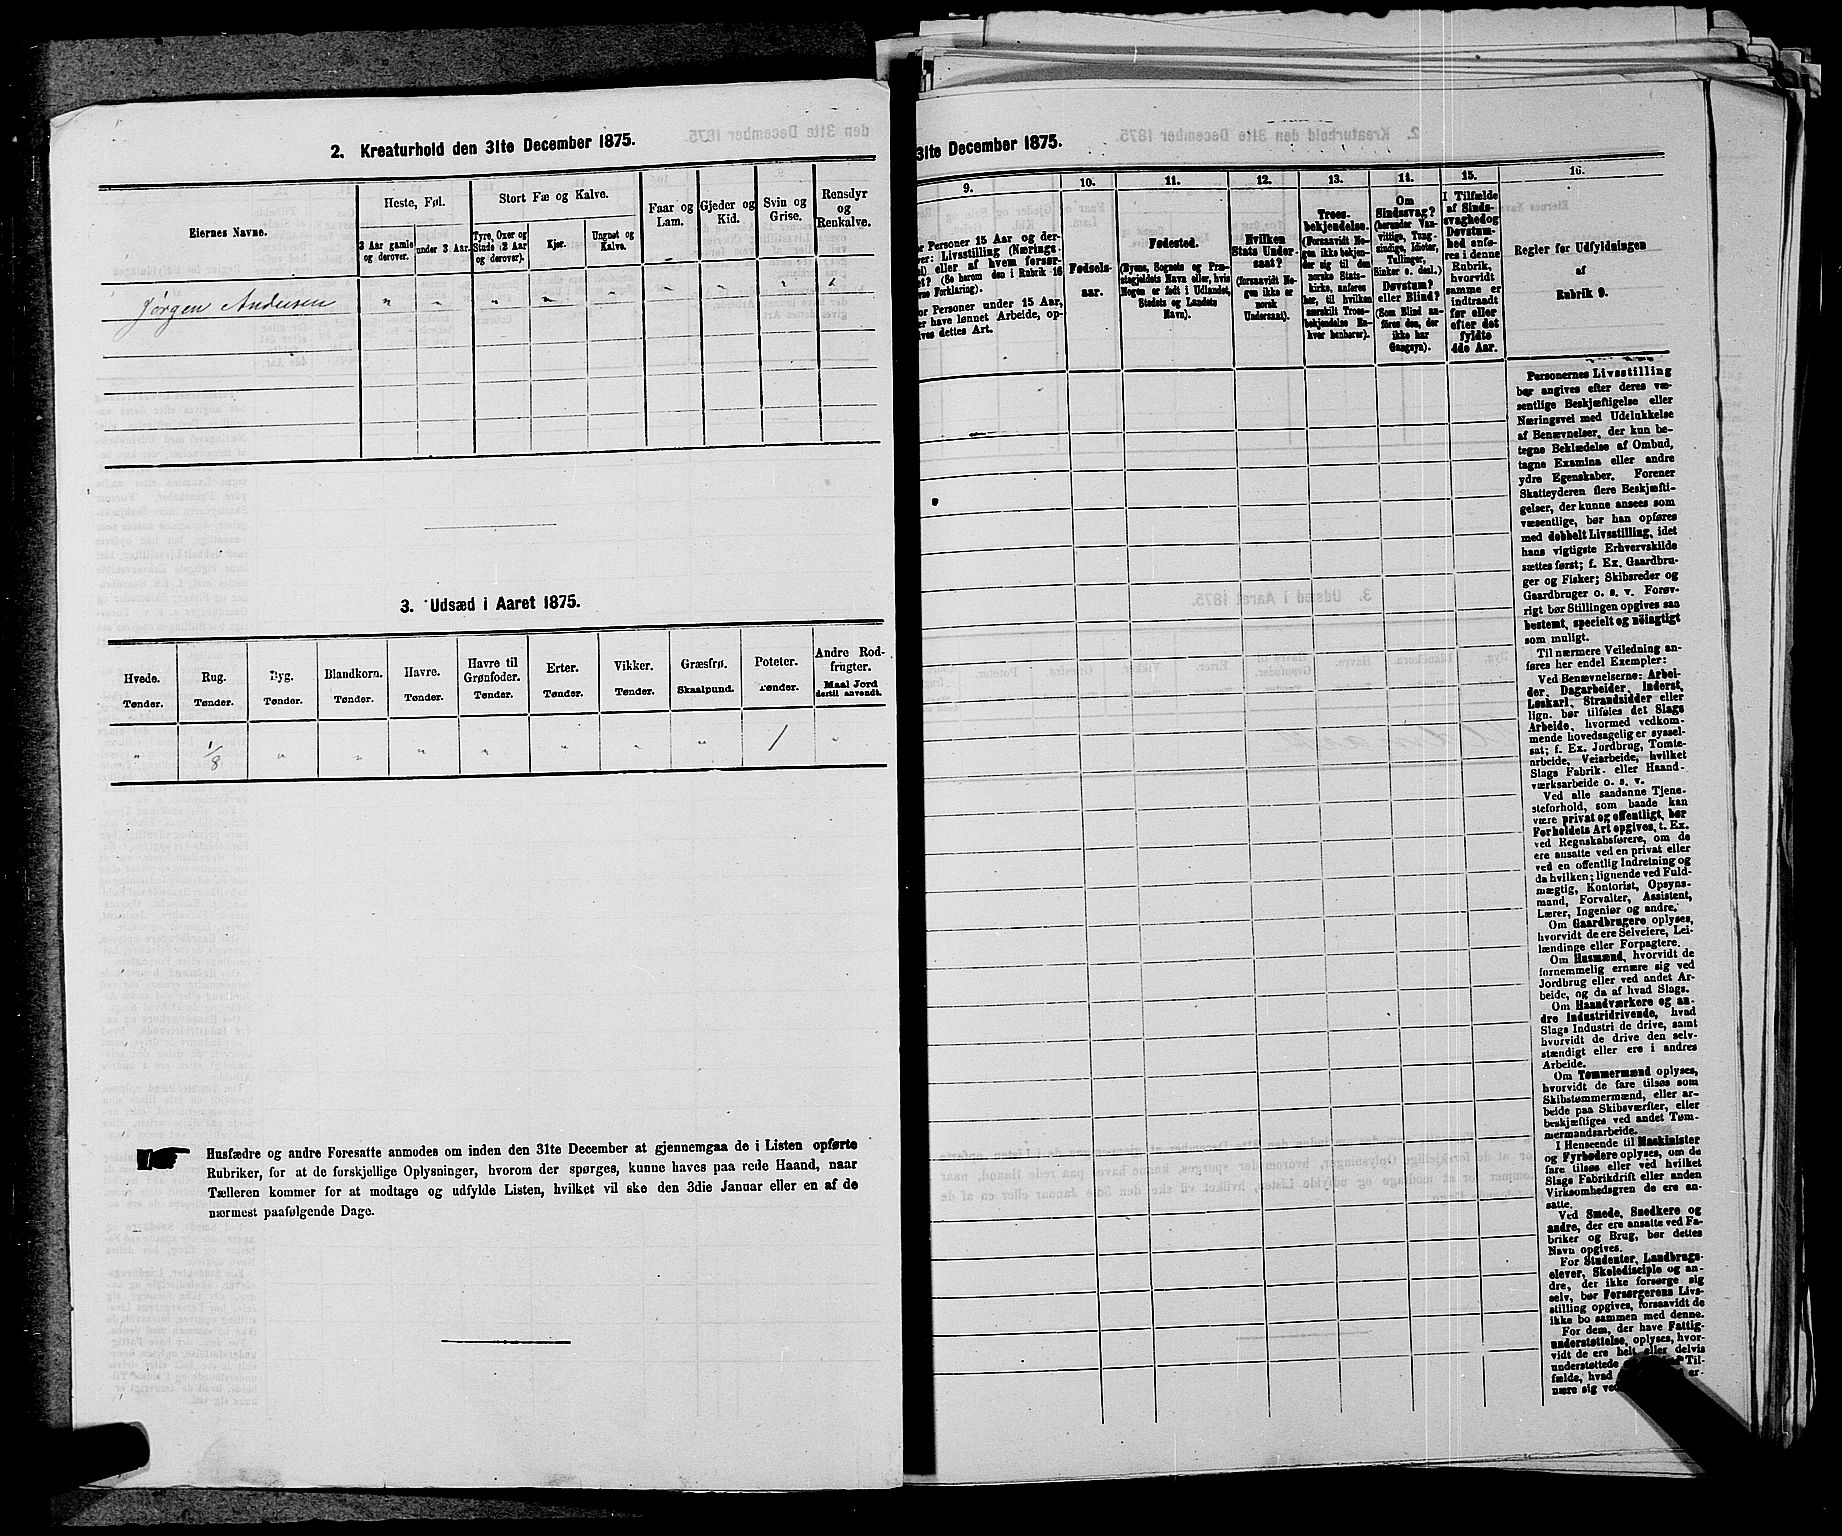 2. Kreaturhold den 31te December 1875.
Eiernes Navne.
Heste, Føl.
3 Aar gamle og derover.
under 3 Aar.
Stort Fæ og Kalve.
Tyre, Oxer og Stude (2 Aar og derover).
Kjør.
Ungnøt og Kalve.
Faar og Lam.
Gjeder og Kid.
Svin og Grise.
Rensdyr og Renkalve.
Jørgen Andersen " " " " " " " "
3. Udsæd i Aaret 1875.
Hvede. Tønder.
Rug. Tønder.
Byg. Tønder.
Blandkorn. Tønder.
Havre. Tønder.
Havre til Grønfoder. Tønder.
Erter. Tønder.
Vikker. Tønder.
Græsfrø. Skaalpund.
Poteter. Tønder.
Andre Rodfrugter. Maal Jord dertil anvendt.
" 1/8 " " " " " " " 1 "
Husfædre og andre Foresatte anmodes om inden den 31te December at gjennemgaa de i Listen opførte
Rubriker, for at de forskjellige Oplysninger, hvorom der spørges, kunne haves paa rede Haand, naar
Tælleren kommer for at modtage og udfylde Listen, hvilket vil ske den 3die Januar eller en af de
nærmest paafølgende Dage.
31te December 1875.
9.
or Personer 15 Aar og der-
ver: Livsstilling (Nærings-
el) eller af hvem forsør-
et? (Se herom den i Rubrik 16
Forklaring).
or Personer under 15 Aar,
er have lønnet Arbeide, op-
ives dettes Art.
10.
Fødsels-
aar.
11.
Fødested.
(Byens, Sognets og Præ-
stegjeldets Navn eller, hvis
Nogen er født i Udlandet,
Stedets og Landets
Navn).
12.
Hvilken
Stats Under-
saat?
(forsaavidt No-
gen ikke er
norsk
Undersaat).
13.
Troes-
bekjendelse.
(Forsaavidt No-
gen ikke bekjen-
der sig til den
norske Stats-
kirke, anføres
her, til hvilken
særskilt Troes-
bekjendelse En-
hver henhører).
14.
Om
Sindssvag?
(herunder Van-
vittige, Tung-
sindige, Idioter,
Tullinger,
Sinker o. desl.)
Døvstum?
eller Blind?
(Som Blind an-
føres den, der
ikke har
Gangsyn).
15.
I Tilfælde
af Sinds-
svaghedog
Døvstum-
hed anfø-
res i denne
Rubrik,
hvorvidt
samme er
indtraadt
før eller
efter det
fyldte
4de Aar.
16.
Regler for Udfyldningen
af
Rubrik 9.
Personernes Livsstilling
bør angives efter deres væ-
sentlige Beskjæftigelse eller
Næringsvei med Udelukkelse
af Benævnelser, der kun be-
tegne Beklædelse af Ombud,
tagne Examina eller andre
ydre Egenskaber. Forener
Skatteyderen flere Beskjæfti-
gelser, der kunne ansees som
væsentlige, bør han opføres
med dobbelt Livsstilling, idet
hans vigtigste Erhvervskilde
sættes først; f. Ex. Gaardbru-
ger og Fisker; Skibsreder og
Gaardbruger o. s. v. Forøv-
rigt bør Stillingen opgives saa
bestemt, specielt og nøiagtigt
som muligt.
Til nærmere Veiledning an-
føres her endel Exempler:
Ved Benævnelserne: Arbei-
der, Dagarbeider, Inderst,
Løskarl, Strandsidder eller
lign. bør tilføies det Slags
Arbeide, hvormed vedkom-
mende hovedsagelig er syssel-
sat; f. Ex. Jordbrug, Tomte-
arbeide, Veiarbeide, hvilket
Slags Fabrik- eller Haand-
værksarbeide o. s. v.
Ved alle saadanne Tjene-
steforhold, som baade kan
være privat og offentligt, bør
Forholdets Art opgives, t. Ex.
ved Regnskabsførere, om de
ere ansatte ved en privat eller
ved en offentlig Indretning og
da hvilken; lignende ved Fuld-
mægtig, Kontorist, Opsyns-
mand, Forvalter, Assistent,
Lærer, Ingeniør og andre.
Om Gaardbrugere oplyses,
hvorvidt de ere Selveiere, Lei-
lændinge eller Forpagtere.
Om Husmænd, hvorvidt de
fornemmelig ernære sig ved
Jordbrug eller ved andet Ar-
beide, og da af hvad Slags.
Om Haandværkere og an-
dre Industridrivende, hvad
Slags Industri de drive, samt
hvorvidt de drive den selv-
stændigt eller ere i andres
Arbeide.
Om Tømmermænd oplyses,
hvorvidt de fare tilsøs som
Skibstømmermænd, eller ar-
beide paa Skibsværfter, eller
beskjæftiges ved andet Tøm-
mermandsarbeide.
I Henseende til Maskinister
og Fyrbødere oplyses, om de
fare tilsøs eller ved hvilket
Slags Fabrikdrift eller anden
Virksomhedsgren de ere an-
satte.
Ved Smede, Snedkere og
andre, der ere ansatte ved Fa-
briker og Brug, bør dettes
Navn opgives.
For Studenter, Landbrugs-
elever, Skoledisciple og an-
dre, der ikke forsørge sig
selv, bør Forsørgerens Livs-
stilling opgives, forsaavidt de
ikke bo sammen med denne.
For dem, der have Fattig-
understøttelse, oplyses, hvor-
vidt de ere helt eller delvis
understøttede Til-
fælde, hvad er-
nære sig ved